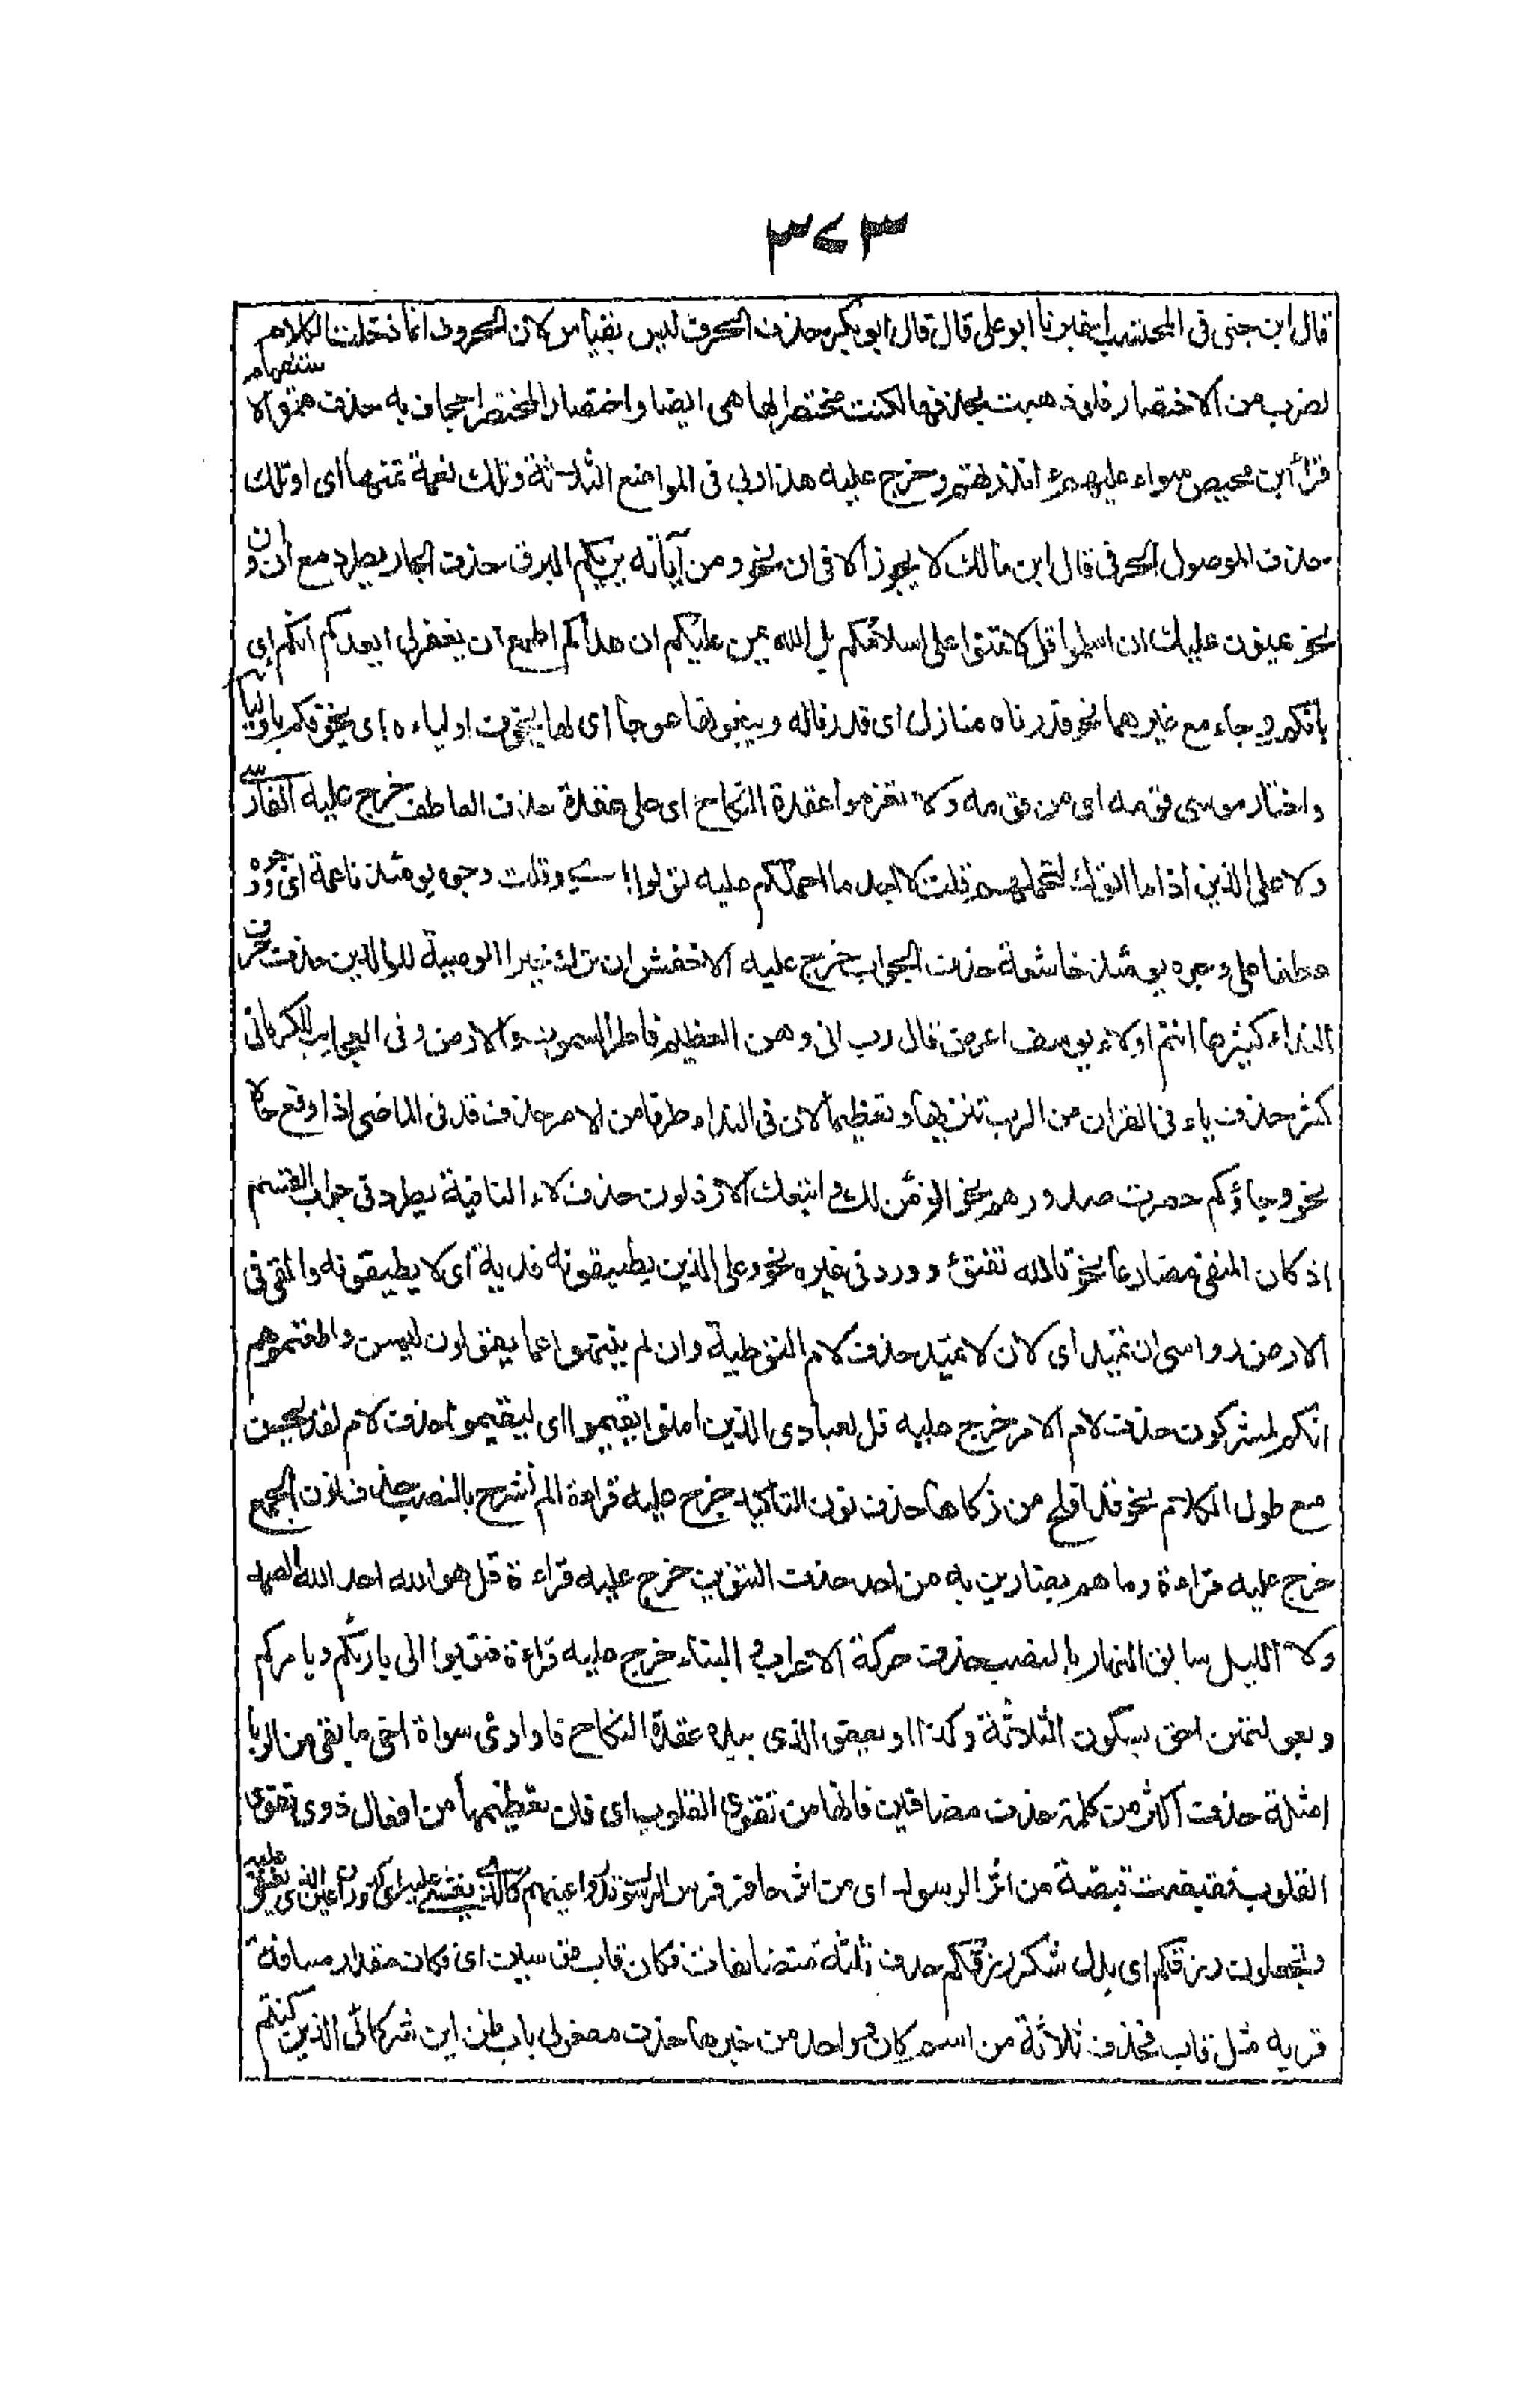 ٣٧٣
قال ابن جنى فى المحتسب اخبرنا ابو على قال قال ابو بكر حذف الحرف ليس بقياس لان الحروف انما دخلت الكلام
لضرب من الاختصار فلو ذهبت تحذفها لكنت مختصرا لها هى ايضا واختصار المختصر اجحاف به حذف همزة الاستفهام
قرأ ابن محيصن سواء عليهم أنذرتهم وخرج عليه هذا ربى فى المواضع الثلاثة وتلك نعمة تمنها اى او تلك
حذف الموصول الحرفى قال ابن مالك لا يجوز الا فى ان نحو ومن آياته يريكم البرق حذف الجار يطرد مع أن و ان
نحو يمنون عليك ان اسلموا قل لا تمنوا على اسلامكم بل الله يمن عليكم ان هداكم اطمع ان يغفر لى ايعدكم انكم اى
بانكم وجاء مع غيرهما نحو قدرناه منازل اى قدرنا له ويبغونها عوجا اى لها يخوف اولياءه اى يخوفكم باوليائه
واختار موسى قومه اى من قومه ولا تعزموا عقدة النكاح اى على عقدة حذف العاطف خرج عليه الفارسى
ولا على الذين اذا ما اتوك لتحملهم قلت لا اجد ما احملكم عليه تولوا اى وقلت وجوه يومئذ ناعمة اى ووجوه
عطفا على وجوه يومئذ خاشعة حذف الجواب خرج عليه الاخفش ان ترك خيرا الوصية للوالدين حذف حرف
النداء كثير ها انتم اولاء يوسف اعرض قال رب انى وهن العظم فاطر السموت والارض وفى العجايب للكرمانى
كثر حذف ياء فى القرآن من الرب تنزيها وتعظيما لان فى النداء طرفا من الامر حذف قد فى الماضى اذا وقع حالا
نحو وجاؤكم حصرت صدورهم نحو انؤمن لك واتبعك الارذلون حذف لاء النافية يطرد فى جواب القسم
اذ كان المنفى مضارعا نحو تالله تفتؤ وورد فى غيره نحو وعلى الذين يطيقونه فدية اى لا يطيقونه والقى فى
الارض رواسى ان تميد اى لان لا تميد حذف لام التوطية وان لم ينتهوا عما يقولون ليمسن وان اطعتموهم
انكم لمشركون حذف لام الامر خرج عليه قل لعبادى الذين امنوا يقيموا اى ليقيموا حذف لام لقد يحسن
مع طول الكلام نحو قد افلح من زكاها حذف نون التأكيد خرج عليه قراءة الم نشرح بالنصب حذف نون الجمع
خرج عليه قراءة وما هم بضارين به من احد حذف التنوين خرج عليه قراءة قل هو الله احد الله الصمد
ولا الليل سابق النهار بالنصب حذف حركة الاعراب والبناء خرج عليه قراءة فتوبوا الى بارئكم ويامركم
وبعولتهن احق بسكون الثلاثة وكذا او يعفو الذى بيده عقدة النكاح فاوارى سواة اخى ما بقى من الربا
امثلة حذف اكثر من كلمة حذف مضافين فانها من تقوى القلوب اى فان تعظيمها من افعال ذوى تقوى
القلوب فقبضت قبضة من اثر الرسول اى من اثر حافر فرس الرسول تدور اعينهم كالذى يغشى عليه اى كدوران عين الذى يغشى عليه
وتجعلون رزقكم اى بدل شكر رزقكم حذف ثلثة متضايفات فكان قاب قوسين اى فكان مقدار مسافة
قربه مثل قاب فحذف ثلاثة من اسم كان وواحد من خبرها حذف مفعولى باب ظن اين شركائى الذين كنتم